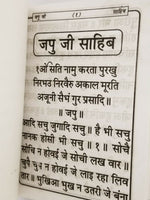 जपु जी (१) साहिब
जपु जी साहिब
१ओं सेति नामु करता पुरखु
निरभउ निरवैरु अकाल मूरति
अजूनी सैभं गुर प्रसादि॥
॥ जपु ॥
आदि सचु जुगादि सचु॥ है भी सचु
नानक होसी भी सचु॥ १॥ सोचै
सोचि न होवई जे सोची लख वार॥
चुपै चुप न होवई जे लाइ रहा लिव
तार॥ भुखिआ भुख न उतरी जे बंना